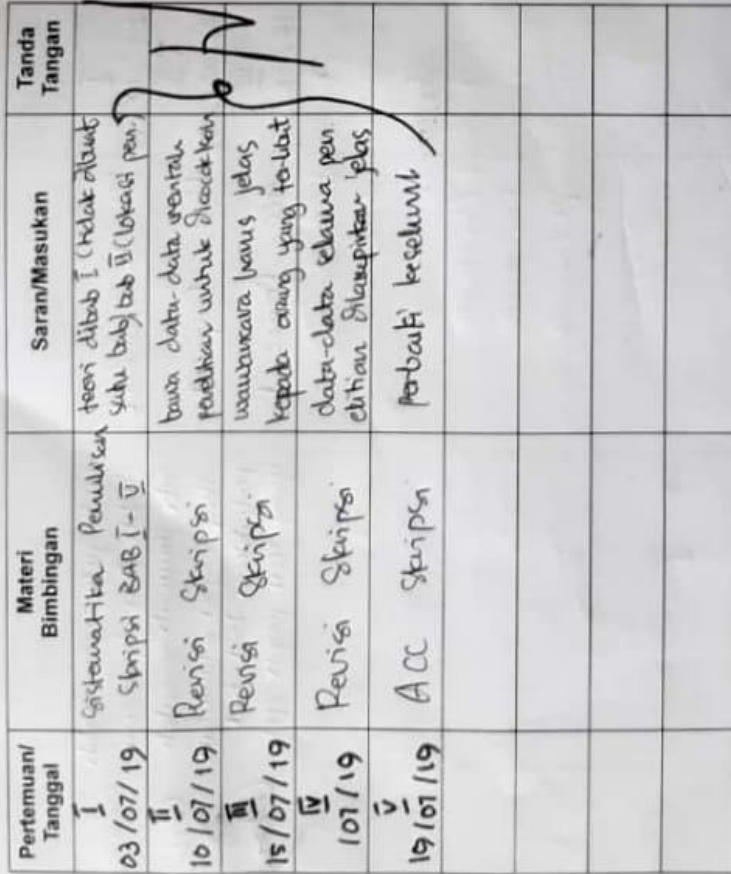 Pertemuan/
Tanggal
Materi
Bimbingan
Saran/Masukan
Tanda
Tangan
I
03/07/19
Sistematika Penulisan
Skripsi BAB I - V
teori dibab I (tidak dibuat
satu bab) bab II (lokasi pen.)
II
10/07/19
Revisi Skripsi
bawa data-data mentah
penelitian untuk dicocokkan
III
15/07/19
Revisi Skripsi
wawancara harus jelas
kepada orang yang terlibat
IV
/07/19
Revisi Skripsi
data-data selama pen.
elitian dilampirkan jelas
V
19/07/19
ACC Skripsi
Perbaiki